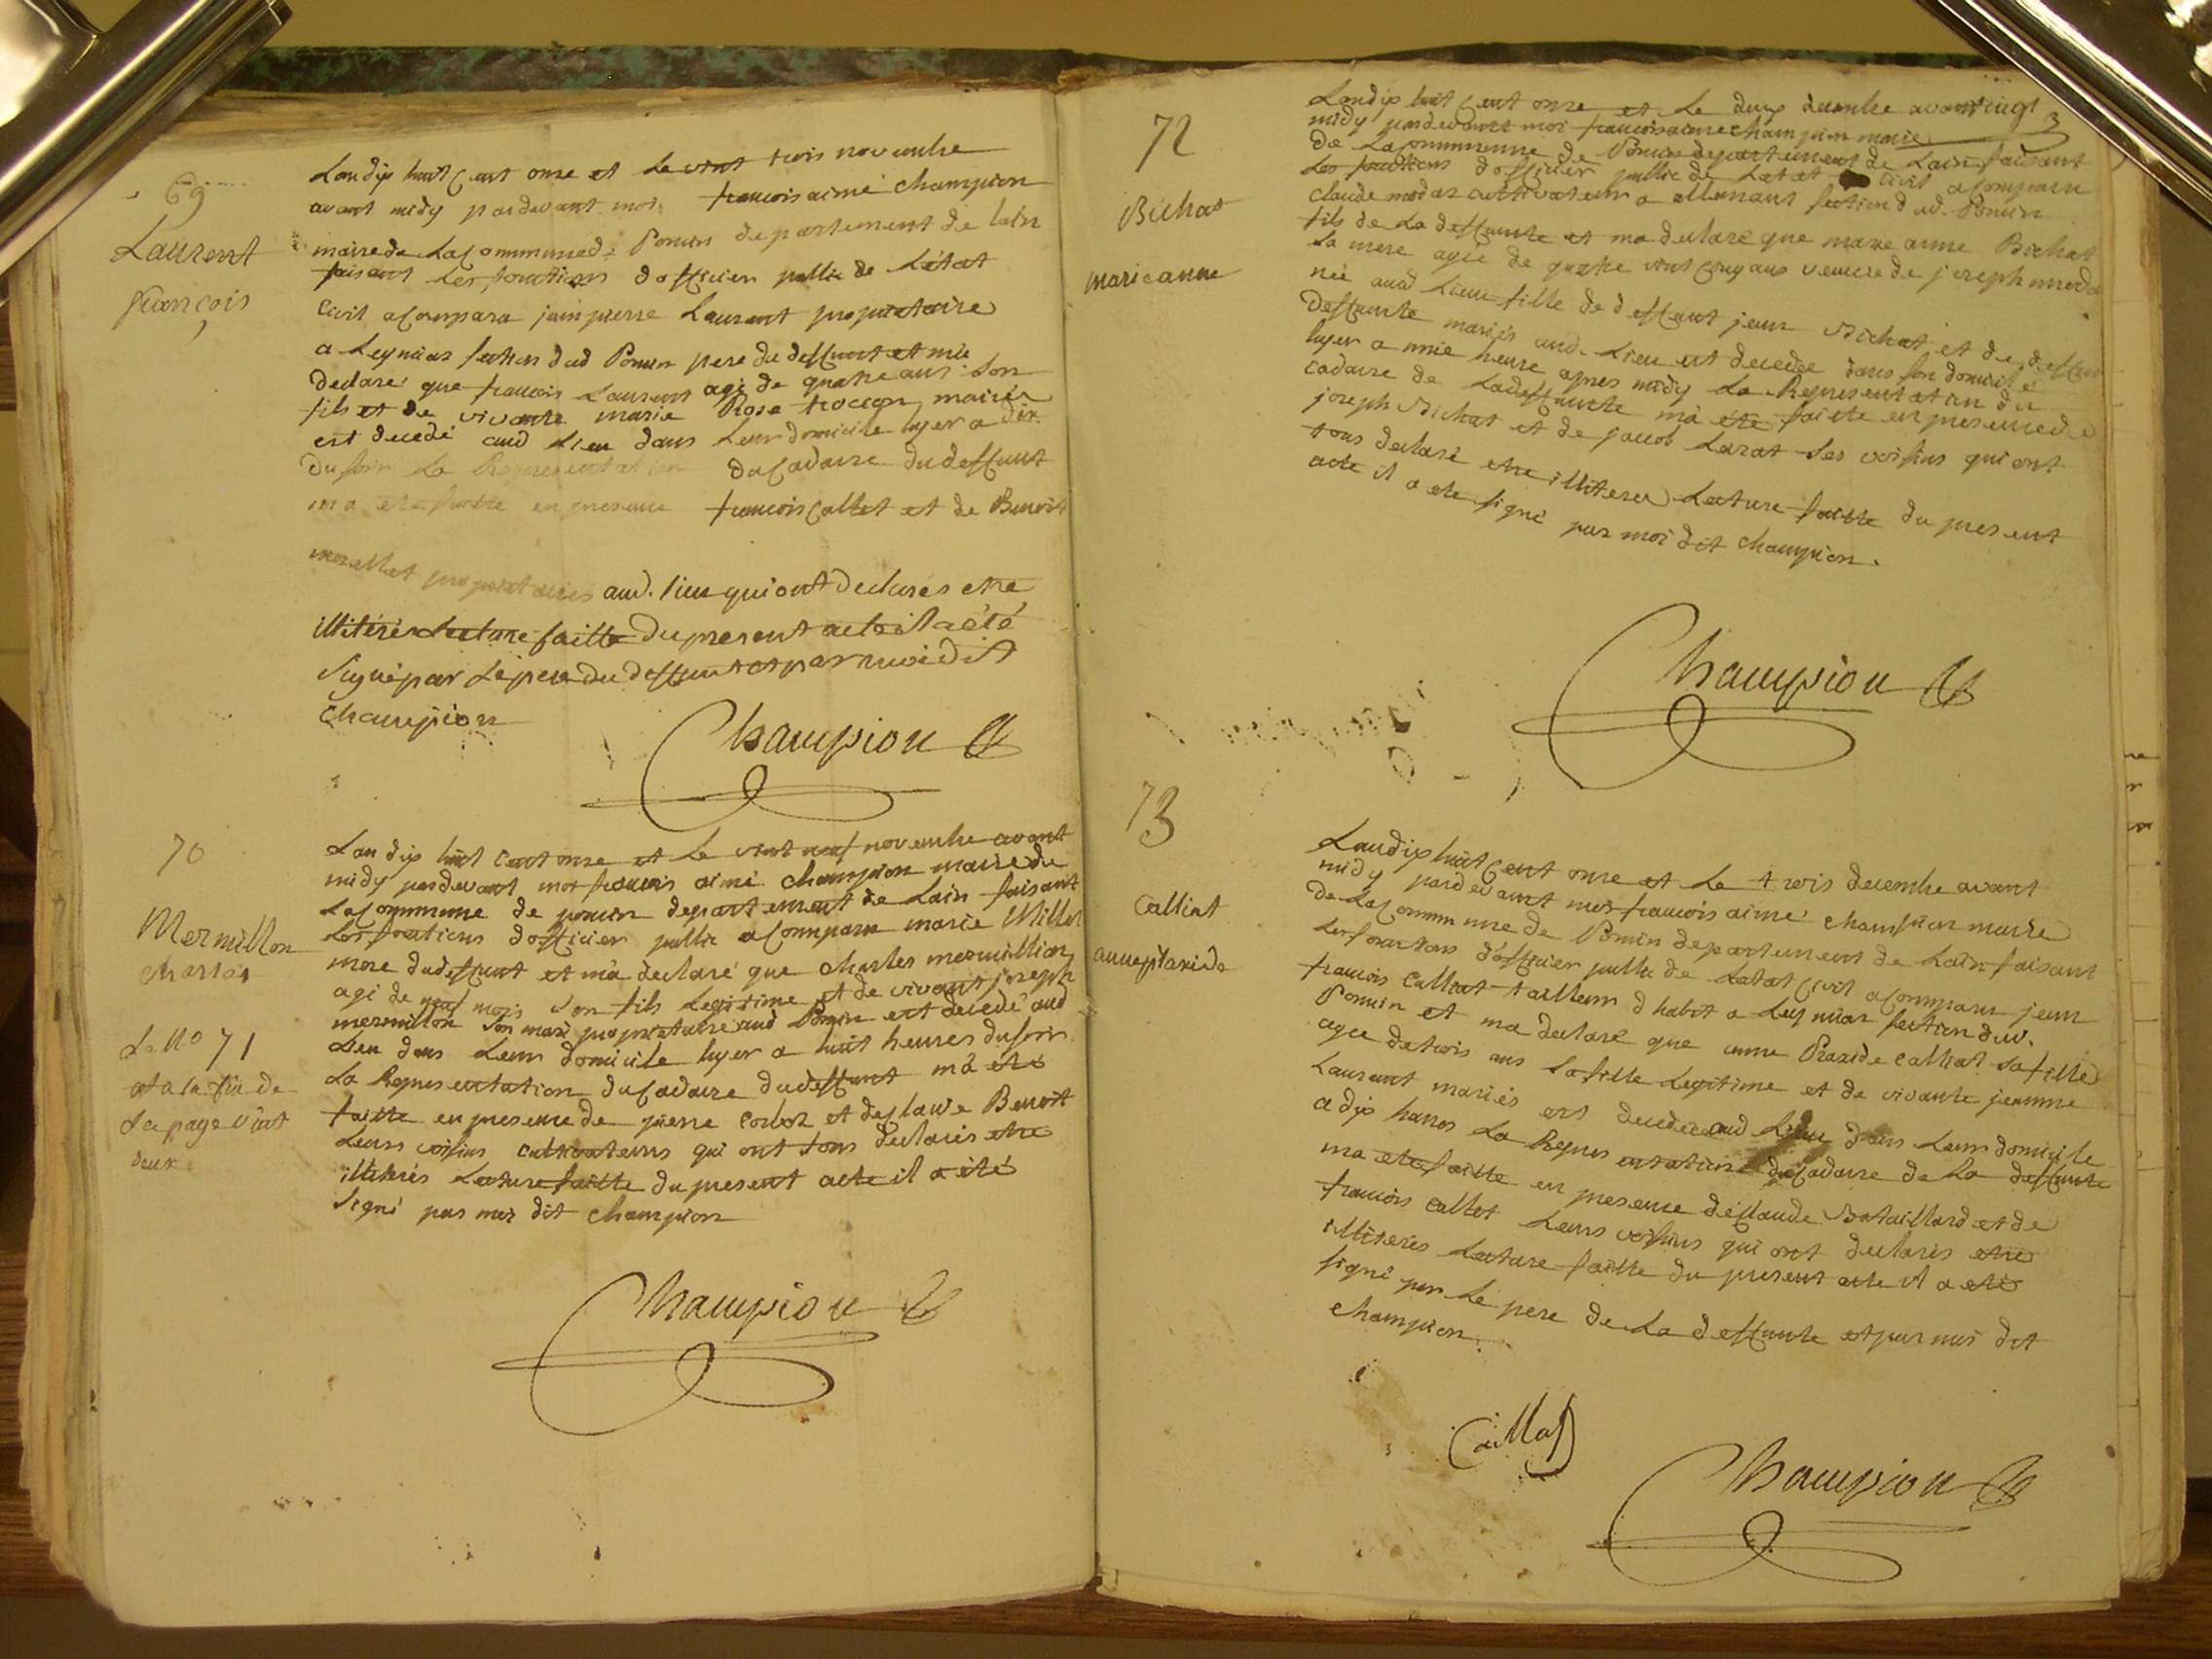 69
Laurent
françois
Landix huit Cent onse et Le vint trois novembre
avant midy pardevant moi francois aimé champion
maire de La Commune de Poncin departement de lain
faisant Les fonctions dofficier public de Létat
Civil a Comparu jainpierre Laurent proprietaire
a Leymiar section dud Poncin pere du deffunt et mà
declaré que francois Laurent agé de quatre ans son
fils et de vivante marie Rose trocon mariés
est decedé aud Lieu dans Leur domicile hyer a dix
du soir La Representation du Cadavre du deffunt
m a ete faitte en presence francois Callet et de Benoit
morellet proprietaires aud. lieu qui ont declarés etre
illiterés Lecture faitte du present acte il a été
Signé par Le pere du deffunt et par moi dit
Champion
Champion
70
Mermillon
charles
Le No 71
at a la fin de
La page vint
deux
Lan dix huit Cent onse et Le vint neuf novembre avant
midy pardevant moi francois aimé champion maire de
La Commune de poncin departement de Lain faisant
Les fonctions dofficier public a Comparu marie Millet
mere du deffunt et mà declaré que charles mermillion
agé de neuf mois Son fils Legitime et de vivant joseph
mermillon Son mari proprietaire aud Poncin est decedé aud
Lieu dans Leur domicile hyer a huit heures du soir
La Representation du Cadavre du deffunt mà eté
faitte en presence de pierre et de Claude Benoit
Leurs voisins cultivateurs qui ont tous declarés etre
illiterés Lecture faitte du present acte il a été
Signé par moi dit champion
Champion
72
Bichat
marieanne
vingt
3
Landix huit Cent onze et Le deux decembre avant
midy pardevant moi francois aimé champion maire
de La Commune de Poncin departement de Lain faisant
Les fonctions dofficier public de Letat Civil a Comparu
Claude modas cultivateur a allemant section dud. Poncin
fils de La deffunte et ma declaré que marie anne Bichat
Sa mere agée de quatre vint Cinq ans veuve de joseph modas
née aud Lieu fille de deffunt jean Bichat et de
Deffunte mariés aud. Lieu est decedée dans son domicile
hyer a mie heure apres midy La Representation du
Cadavre de La deffunte mà eté faitte en presence de
joseph Bichat et de jacob Larat Ses voisins qui ont
tous declaré etre illiteres Lecture faitte du present
acte il a ete signé par moi dit champion.
Champion
73
Calliat
anne praxide
Landix huit Cent onse et Le trois decembre avant
midy pardevant moi francois aimé champion maire
de La Commune de Poncin departement de Lain faisant
Les fonctions d'officier public de Letat Civil a Comparu jean
francois Calliat tailleur d habit a Leymiar section dud.
Poncin et ma declaré que anne Praxide Calliat Sa fille
agée de trois ans Sa fille Legitime et de vivante jeanne
Laurent mariés est decedée aud Lieu dans Leur domicile
a dix heures La Representation du Cadavre de La deffunte
ma ete faitte en presence de Claude Bataillard et de
francois Callet Leurs voisins qui ont declarés etre
illiterés Lecture faitte du present acte il a eté
signé par Le pere de La deffunte et par moi dit
champion.
Champion